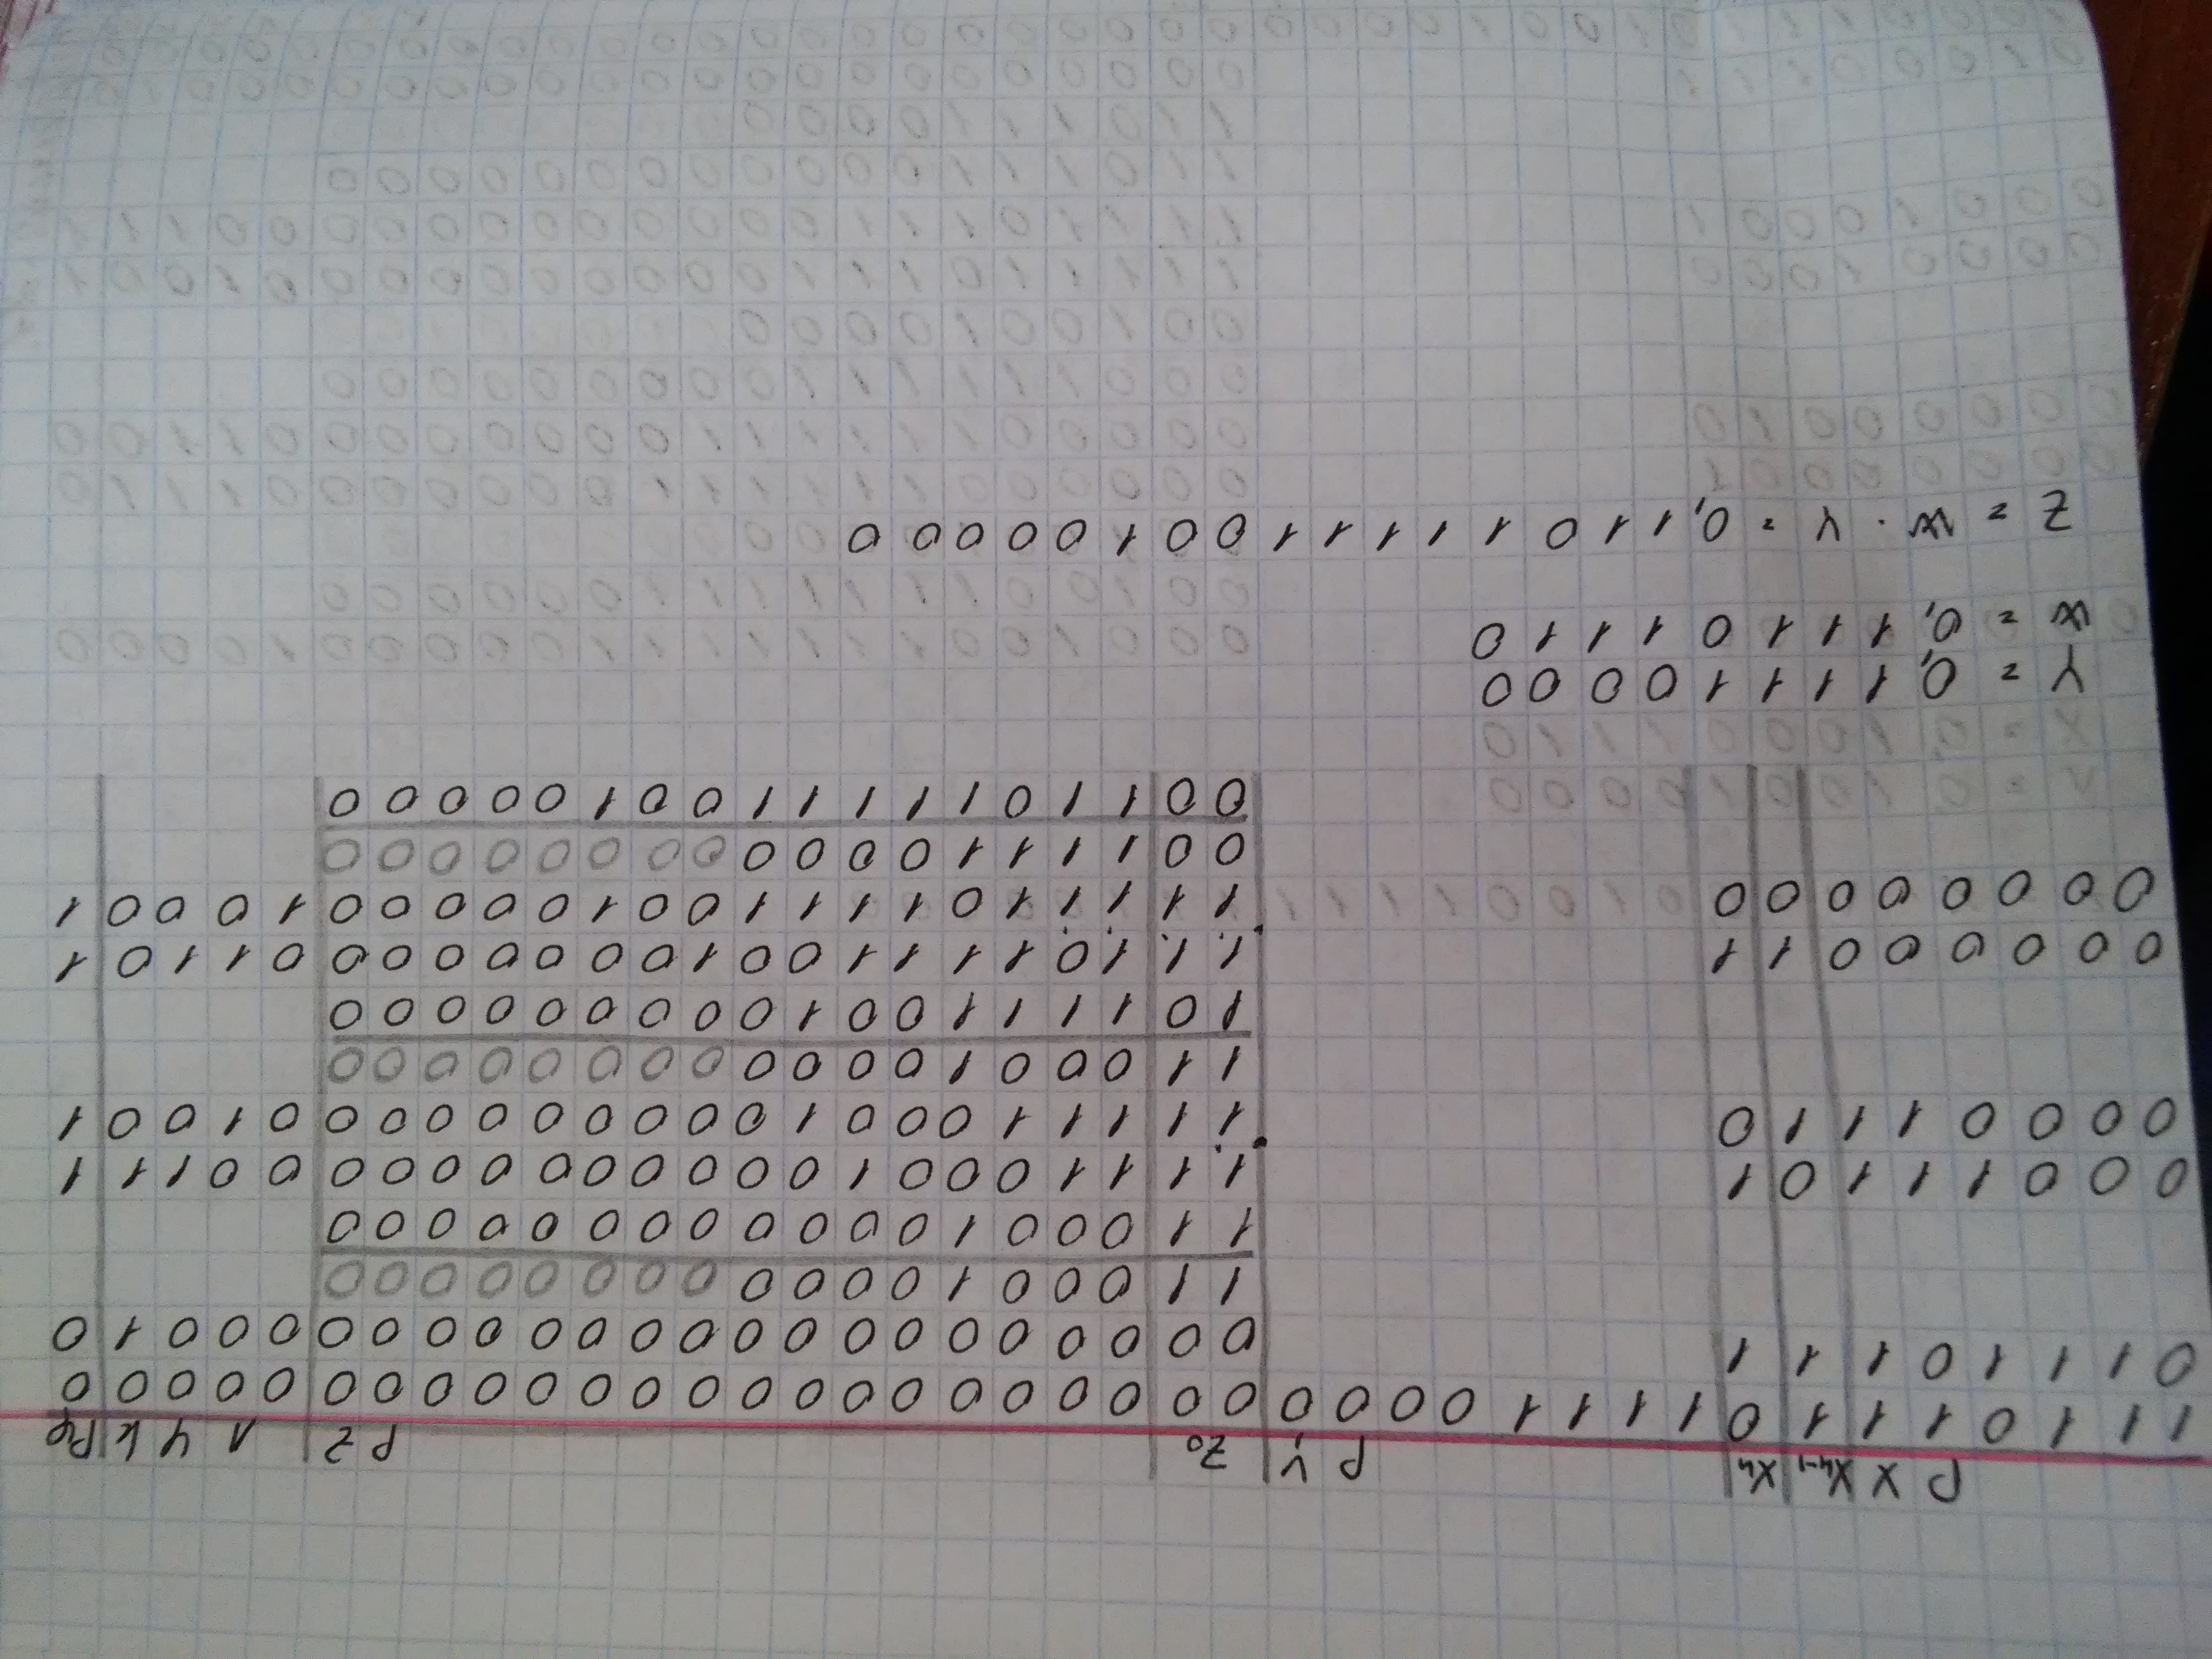 Р Х Xn-1 Xn Р Y Z0 Р Z 1 Ч k Рφ
1 1 1 0 1 1 1 0 1 1 1 1 0 0 0 0 0 0 0 0 0 0 0 0 0 0 0 0 0 0 0 0 0 0 0 0 0 0 0 0
0 1 1 1 0 1 1 1 0 0 0 0 0 0 0 0 0 0 0 0 0 0 0 0 0 0 0 0 0 1 0
1 1 0 0 0 1 0 0 0 0 0 0 0 0 0 0 0 0
1 1 0 0 0 1 0 0 0 0 0 0 0 0 0 0 0 0
0 0 0 1 1 1 0 1 1. 1. 1 1 0 0 0 1 0 0 0 0 0 0 0 0 0 0 0 0 1 1 1
0 0 0 0 1 1 1 0 1 1 1 1 1 0 0 0 1 0 0 0 0 0 0 0 0 0 0 1 0 0 1
1 1 0 0 0 1 0 0 0 0 0 0 0 0 0 0 0 0
1 0 1 1 1 1 0 0 1 0 0 0 0 0 0 0 0 0
0 0 0 0 0 0 1 1 1. 1. 1 0 1 1 1 1 0 0 1 0 0 0 0 0 0 0 0 1 1 0 1
0 0 0 0 0 0 0 0 1 1 1 1 1 0 1 1 1 1 0 0 1 0 0 0 0 0 1 0 0 0 1
0 0 1 1 1 1 0 0 0 0 0 0 0 0 0 0 0 0
0 0 1 1 0 1 1 1 1 1 0 0 1 0 0 0 0 0
Y = 0,1 1 1 1 0 0 0 0
W = 0,1 1 1 0 1 1 1 0
Z = W · Y = 0,1 1 0 1 1 1 1 1 0 0 1 0 0 0 0 0